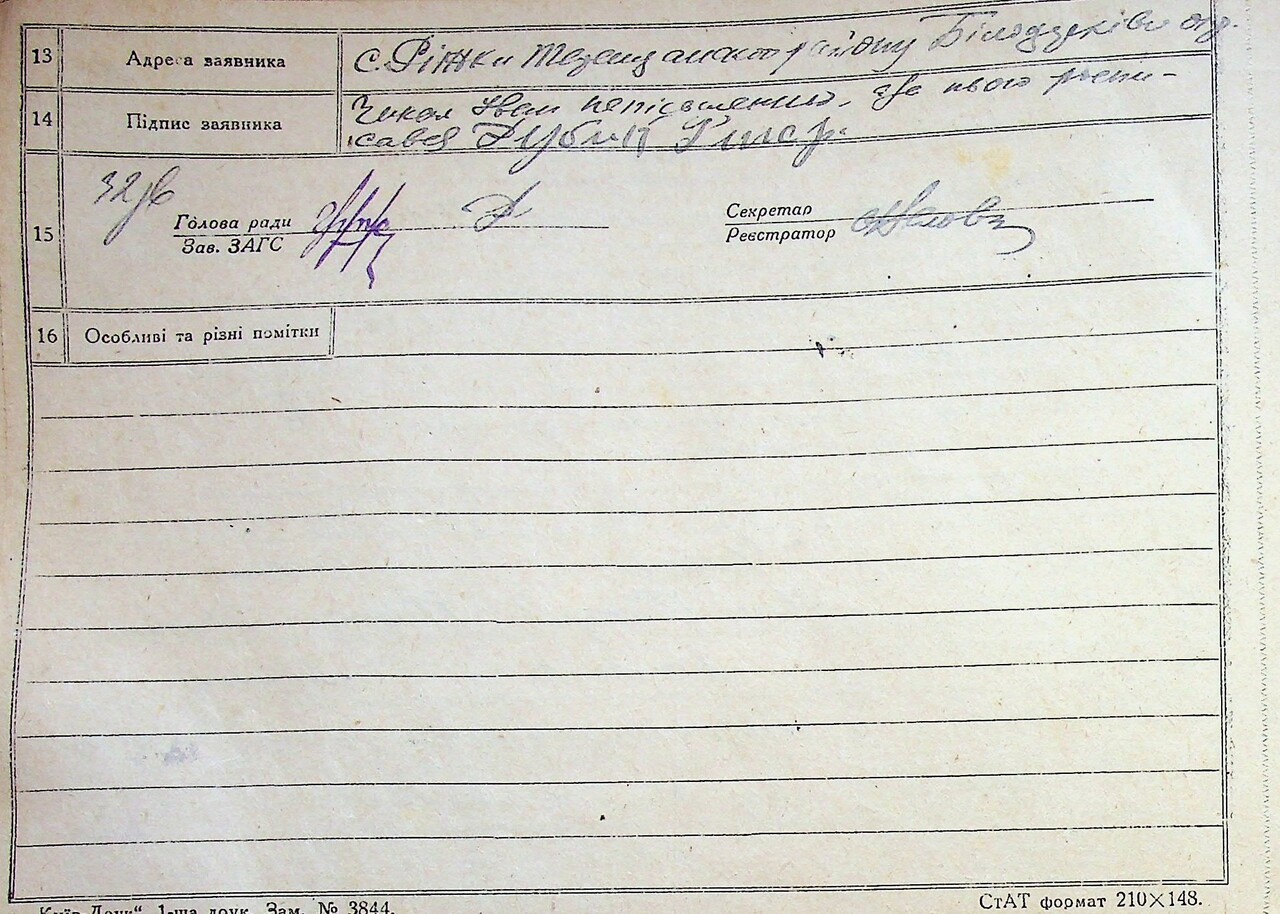 13 Адреса заявника с. Ріжки Тетещанського району Білоцерків
14 Підпис заявника Чикал Іван неписьменний, за нього розпи-
сався
15 Голова ради Секретар
Зав. ЗАГС Реєстратор
16 Особливі та різні помітки
„Київ-Друк“, 1-ша друк. Зам. № 3844. СтАТ формат 210×148.